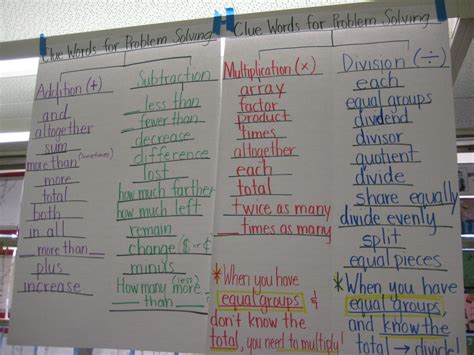 Clue Words for Problem Solving
Addition (+)
and
altogether
sum
more than (sometimes)
more
total
both
in all
more than __
plus
increase
Subtraction
__ less than
__ fewer than
decrease
difference
lost
how much farther
how much left
remain
change ($ or ¢)
minus
How many more (less)
__ than __
Clue Words for Problem Solving
Multiplication (x)
array
factor
product
times
altogether
each
total
twice as many
__ times as many
*When you have
equal groups &
don't know the
total, you need to multiply!
Division (÷)
each
equal groups
dividend
divisor
quotient
divide
share equally
divide evenly
split
equal pieces
*When you have
equal groups,
and know the
total → divide!